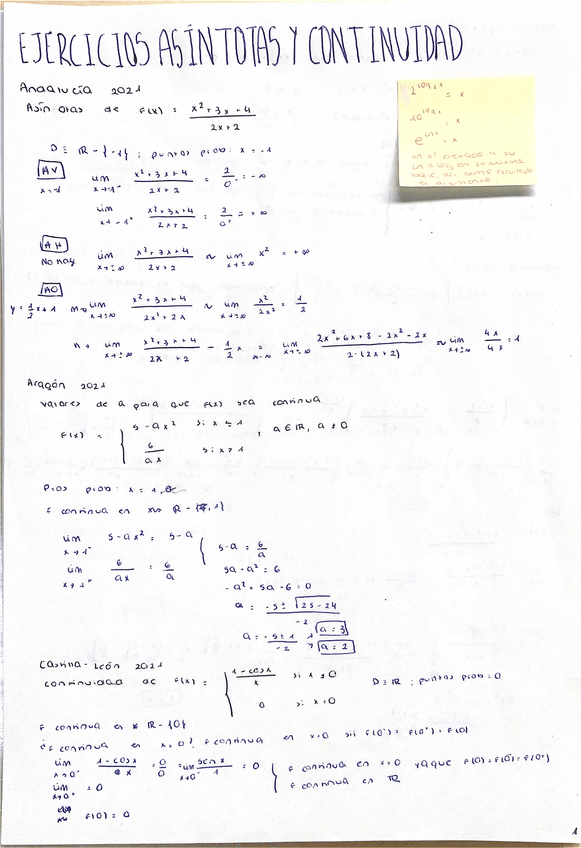 EJERCICIOS ASÍNTOTAS Y CONTINUIDAD
Andalucía 2021
Asíntotas de f(x) = x²+3x+4 / 2x+2
2^log₂x = x
10^log x = x
e^lnx = x
un nº elevado a su
D = ℝ - {-1} ; puntos prob: x = -1
AV
x=-1
lim x→-1⁻ x²+3x+4 / 2x+2 = 2/0⁻ = -∞
lim x→-1⁺ x²+3x+4 / 2x+2 = 2/0⁺ = +∞
AH
No hay
lim x→±∞ x²+3x+4 / 2x+2 ~ lim x→±∞ x² = +∞
AO
y = 1/2 x + 1 m→ lim x→±∞ x²+3x+4 / 2x²+2x ~ lim x→±∞ x²/2x² = 1/2
n→ lim x→±∞ x²+3x+4 / 2x+2 - 1/2 x = lim x→±∞ 2x²+6x+8-2x²-2x / 2·(2x+2) ~ lim x→±∞ 4x/4x = 1
Aragón 2021
valores de a para que f(x) sea continua
f(x) = { 5-ax² si x ≤ 1
6/ax si x > 1 , a ∈ ℝ, a ≠ 0
Ptos prob: x = 1
f continua en ℝ - {1}
lim x→1⁻ 5-ax² = 5-a
lim x→1⁺ 6/ax = 6/a
5-a = 6/a
5a-a² = 6
-a²+5a-6 = 0
a = -5±√25-24 / -2
a = -5±1 / -2 a=3
a=2
Castilla-León 2021
continuidad de f(x) = { 1-cosx / x si x ≠ 0
0 si x=0 D = ℝ ; puntos prob: 0
f continua en ℝ - {0}
¿f continua en x=0? f continua en x=0 sii f(0⁻) = f(0⁺) = f(0)
lim x→0⁻ 1-cosx / x = 0/0 = lim x→0⁻ senx / 1 = 0
lim x→0⁺ = 0
f(0) = 0
f continua en x=0 ya que f(0) = f(0⁻) = f(0⁺)
f continua en ℝ
1